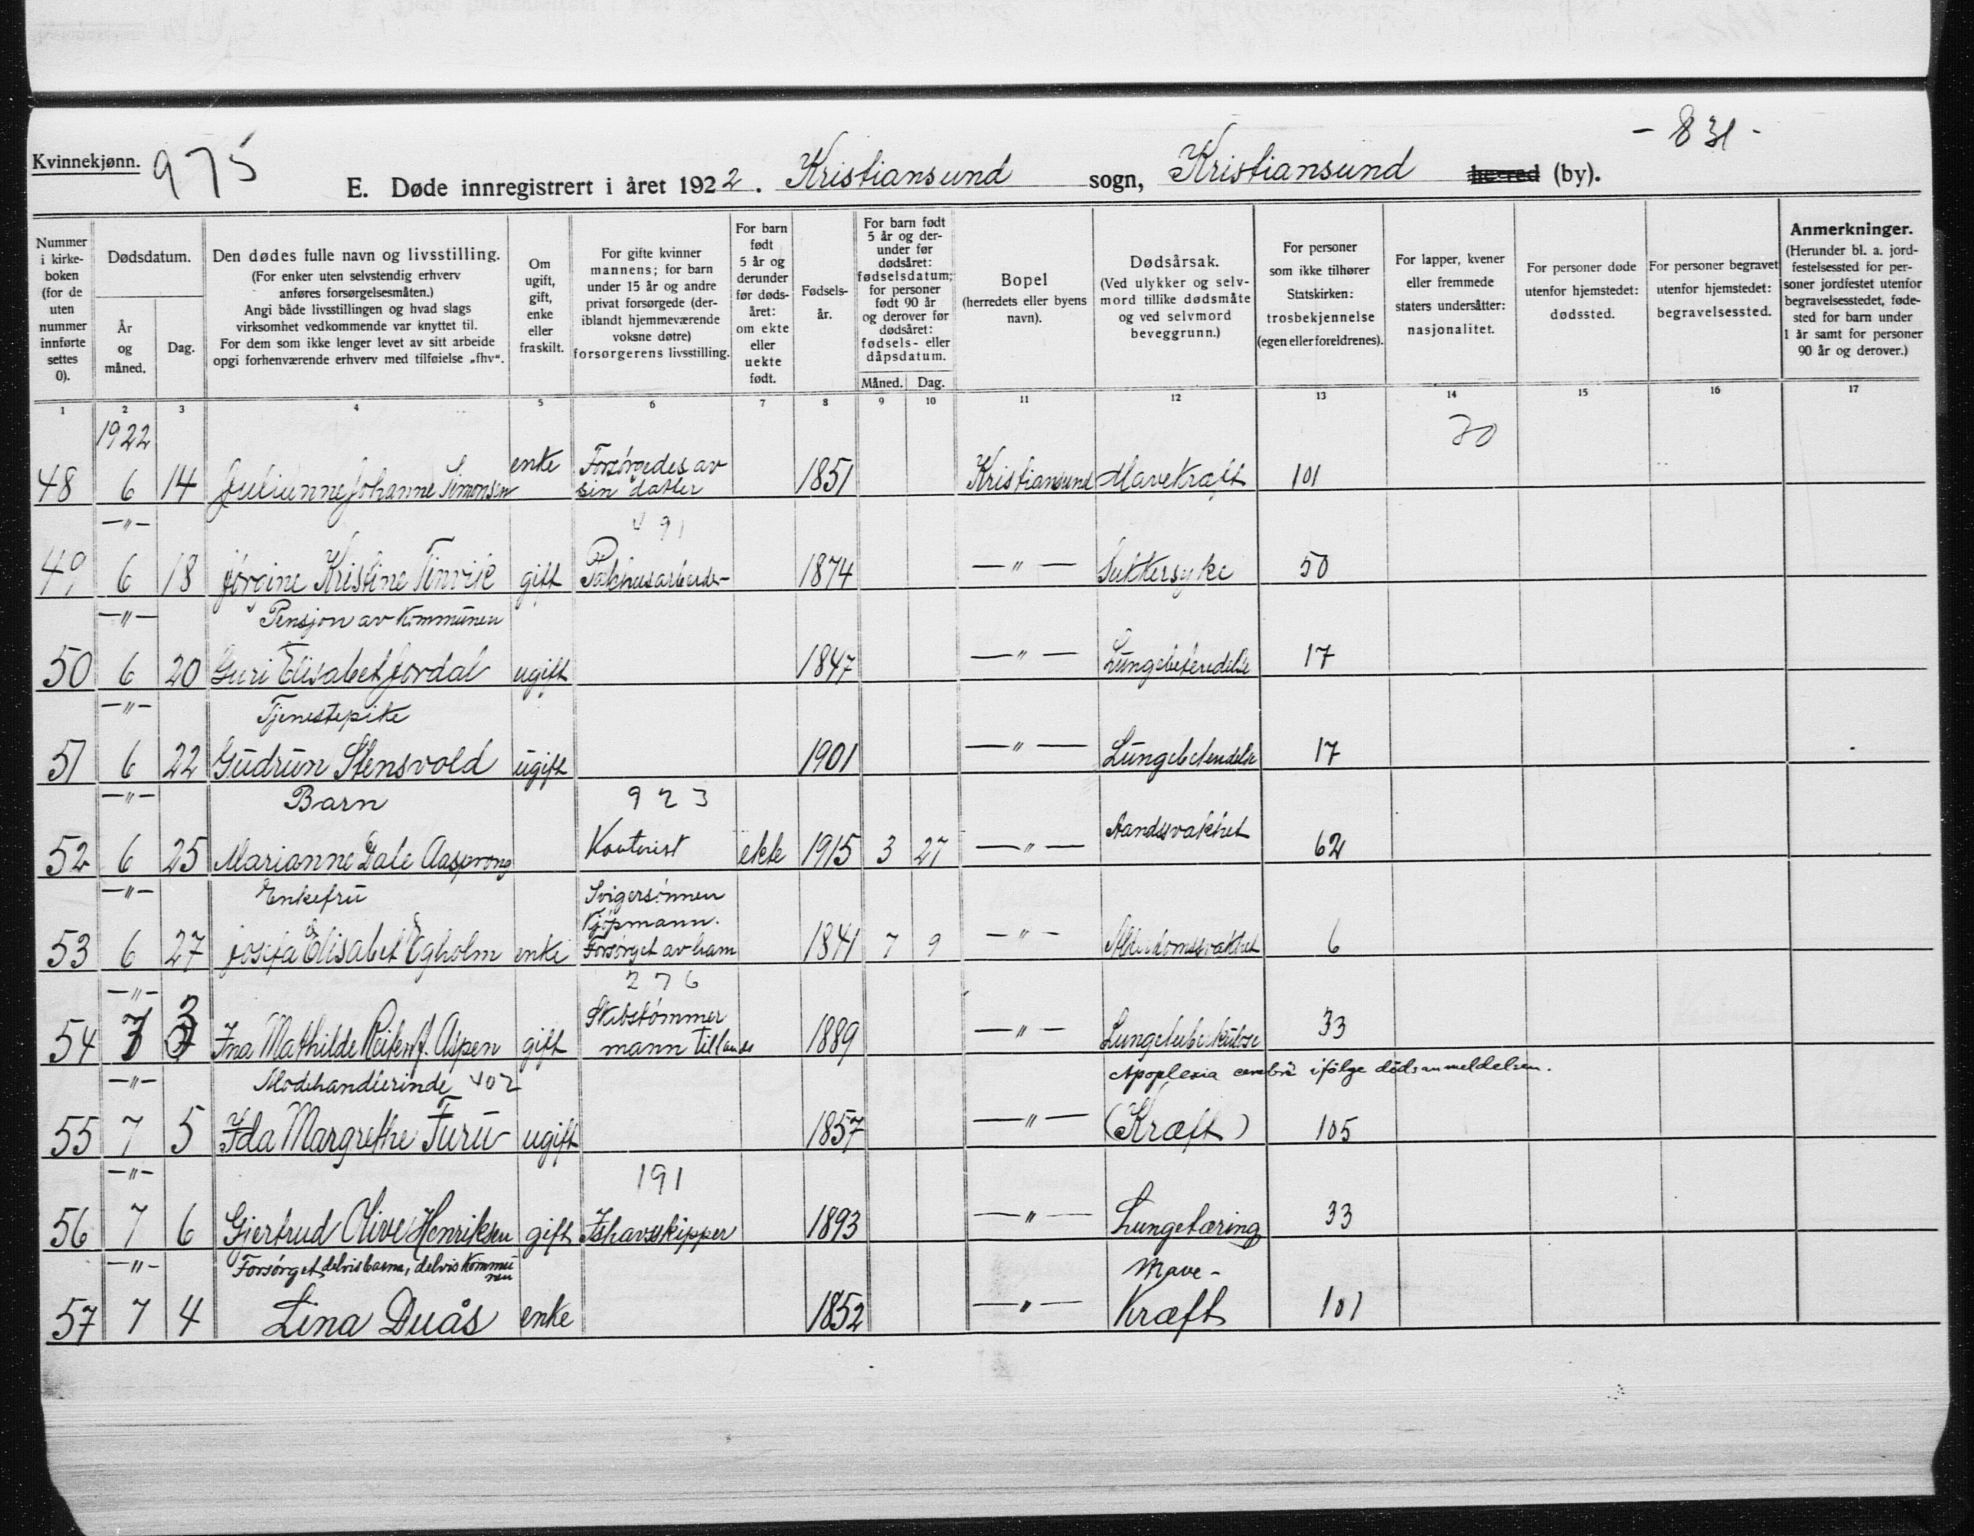 - 831 -
Kvinnekjønn. 975
E. Døde innregistrert i året 1922. Kristiansund sogn, Kristiansund herred (by).
Nummer i kirke-boken (for de uten nummer innførte settes 0).
Dødsdatum.
År og måned.
Dag.
Den dødes fulle navn og livsstilling.
(For enker uten selvstendig erhverv
anføres forsørgelsesmåten.)
Angi både livsstillingen og hvad slags
virksomhet vedkommende var knyttet til.
For dem som ikke lenger levet av sitt arbeide
opgi forhenværende erhverv med tilføielse „fhv“.
Om ugift, gift, enke eller fraskilt.
For gifte kvinner
mannens; for barn
under 15 år og andre
privat forsørgede (der-
iblandt hjemmeværende
voksne døtre)
forsørgerens livsstilling.
For barn født 5 år og derunder før døds-året: om ekte eller uekte født.
Fødsels-år.
For barn født
5 år og der-
under før
dødsåret:
fødselsdatum;
for personer
født 90 år
og derover før
dødsåret:
fødsels- eller
dåpsdatum.
Måned. Dag.
Bopel
(herredets eller byens
navn).
Dødsårsak.
(Ved ulykker og selv-
mord tillike dødsmåte
og ved selvmord
beveggrunn.)
For personer
som ikke tilhører
Statskirken:
trosbekjennelse
(egen eller foreldrenes).
For lapper, kvener
eller fremmede
staters undersåtter:
nasjonalitet.
For personer døde
utenfor hjemstedet:
dødssted.
For personer begravet
utenfor hjemstedet:
begravelsessted.
Anmerkninger.
(Herunder bl. a. jord-
festelsessted for per-
soner jordfestet utenfor
begravelsesstedet, føde-
sted for barn under
1 år samt for personer
90 år og derover.)
1 2 3 4 5 6 7 8 9 10 11 12 13 14 15 16 17
1922
Forsørgedes av
48 6 14 Julianne Johanne Simonsen enke sin datter 1851 Kristiansund Mavekræft 101
—"— 491
49 6 18 Jørgine Kristine Tinvik gift Pakhusarbeide- 1874 —"— Sukkersyke 50
—"— Pensjon av Kommunen
50 6 20 Guri Elisabet Jordal ugift 1847 —"— Lungebetendelse 17
—"— Tjenestepike
51 6 22 Gudrun Stensvold ugift 1901 —"— Lungebetendelse 17
—"— Barn 923
52 6 25 Marianne Dale Aasprong Kontorist ekte 1915 3 27 —"— Aandssvakhet 62
—"— Enkefru Svigersønnen
Kjøpmann.
53 6 27 Josefa Elisabet Egholm enke Forsørget av ham 1841 7 9 —"— Alderdomssvakhet 6
—"— 276
Skibstømmer
54 7 3 Ina Mathilde Reiten f. Aspen gift mann tillands 1889 —"— Lungetuberkulose 33
—"— Modehandlerinde 402 Apoplexia cerebri ifølge dødsanmeldelsen.
55 7 5 Ida Margrethe Furu ugift 1857 —"— (Kræft) 105
—"— 191
56 7 6 Gjertrud Olive Henriksen gift Ishavsskipper 1893 —"— Lungetæring 33
—"— Forsørget delvis barna, delvis kommunen Mave-
57 7 4 Lina Duås enke 1852 —"— Kræft 101